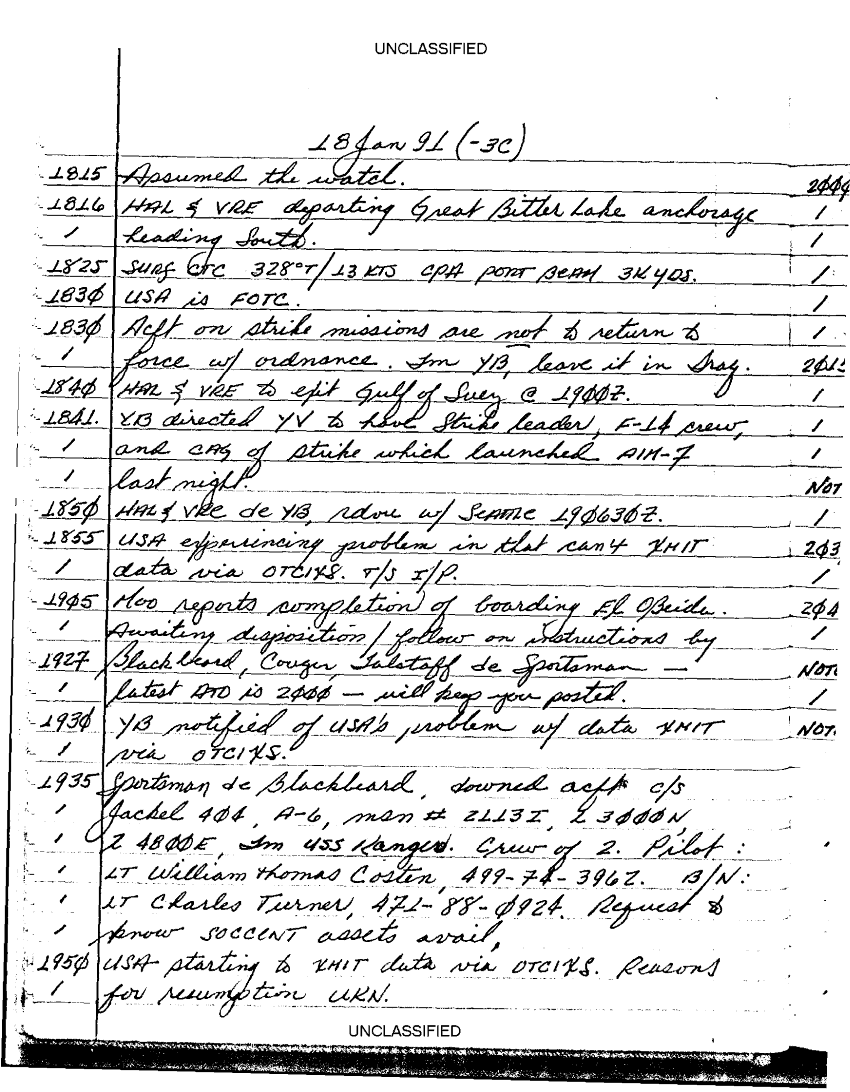 UNCLASSIFIED
18 Jan 91 (-3C)
1815 Assumed the watch.
1816 HAL & VRE departing Great Bitter Lake anchorage
/ heading South.
1825 SURF CTC 328°T/13 KTS CPA PORT BEAM 3K YDS.
1830 USA is FOTC.
1830 Acft on strike missions are not to return to
/ force w/ ordnance. Fm YB, leave it in Iraq.
1840 HAL & VRE to exit Gulf of Suez @ 1900Z.
1841. YB directed YV to have Strike leader, F-14 crew,
/ and CAG of strike which launched AIM-7
/ last night.
1850 HAL & VRE de YB, rdvu w/ 190630Z.
1855 USA experiencing problem in that can't XMIT
/ data via OTCIXS. T/S I/P.
1905 Moo reports completion of boarding El Obeida.
/ Awaiting disposition / follow on instructions by
1927 Blackbeard, Couger, Falstaff de Sportsman —
/ latest ATO is 2000 — will keep you posted.
1930 YB notified of USA's problem w/ data XMIT
/ via OTCIXS.
1935 Sportsman de Blackbeard, downed acft c/s
/ Jackel 404, A-6, msn # 2113I, L 3000N,
/ L 4800E, fm USS Ranger. Crew of 2. Pilot:
/ LT William Thomas Costen, 499-74-3962. B/N:
/ LT Charles Turner, 471-88-0924. Request to
/ know SOCCENT assets avail,
1950 USA starting to XMIT data via OTCIXS. Reasons
/ for resumption UKN.
UNCLASSIFIED